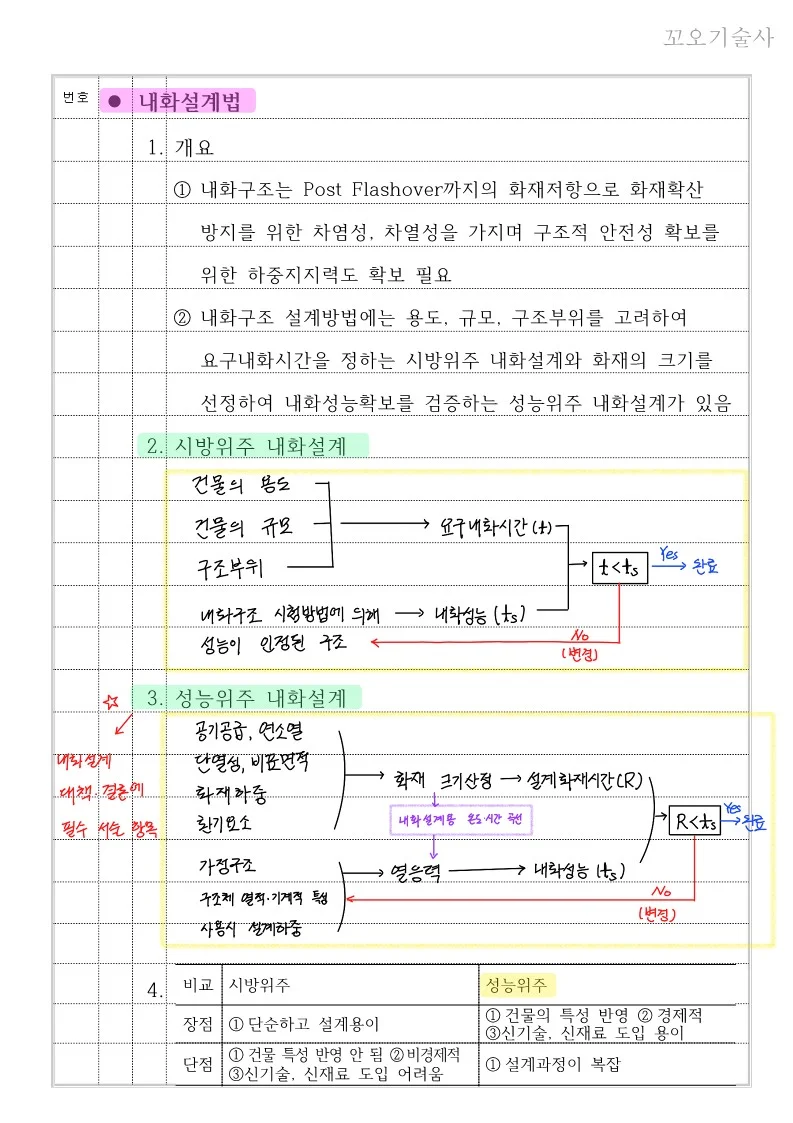 꼬오기술사
번호
● 내화설계법
1. 개요
① 내화구조는 Post Flashover까지의 화재저항으로 화재확산
방지를 위한 차염성, 차열성을 가지며 구조적 안전성 확보를
위한 하중지지력도 확보 필요
② 내화구조 설계방법에는 용도, 규모, 구조부위를 고려하여
요구내화시간을 정하는 시방위주 내화설계와 화재의 크기를
선정하여 내화성능확보를 검증하는 성능위주 내화설계가 있음
2. 시방위주 내화설계
건물의 용도
건물의 규모
구조부위
요구내화시간(t)
내화구조 시험방법에 의해
성능이 인정된 구조
내화성능(ts)
t<ts
Yes
완료
No
(변경)
☆ 3. 성능위주 내화설계
내화설계
대책·결론에
필수 서술 항목
공기공급, 연소열
단열성, 비표면적
화재하중
환기요소
화재 크기산정
설계화재시간(R)
내화설계용 온도시간 곡선
가정구조
구조체 열적·기계적 특성
사용시 설계하중
열응력
내화성능(ts)
R<ts
Yes
완료
No
(변경)
4.
비교 시방위주 성능위주
장점 ①단순하고 설계용이 ①건물의 특성 반영 ②경제적
③신기술, 신재료 도입 용이
단점 ①건물 특성 반영 안 됨 ②비경제적 ①설계과정이 복잡
③신기술, 신재료 도입 어려움